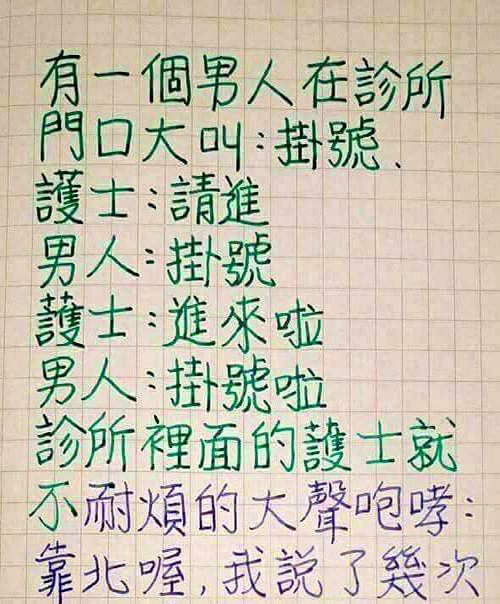 有一個男人在診所
門口大叫：掛號、
護士：請進
男人：掛號
護士：進來啦
男人：掛號啦
診所裡面的護士就
不耐煩的大聲咆哮：
靠北喔，我說了幾次